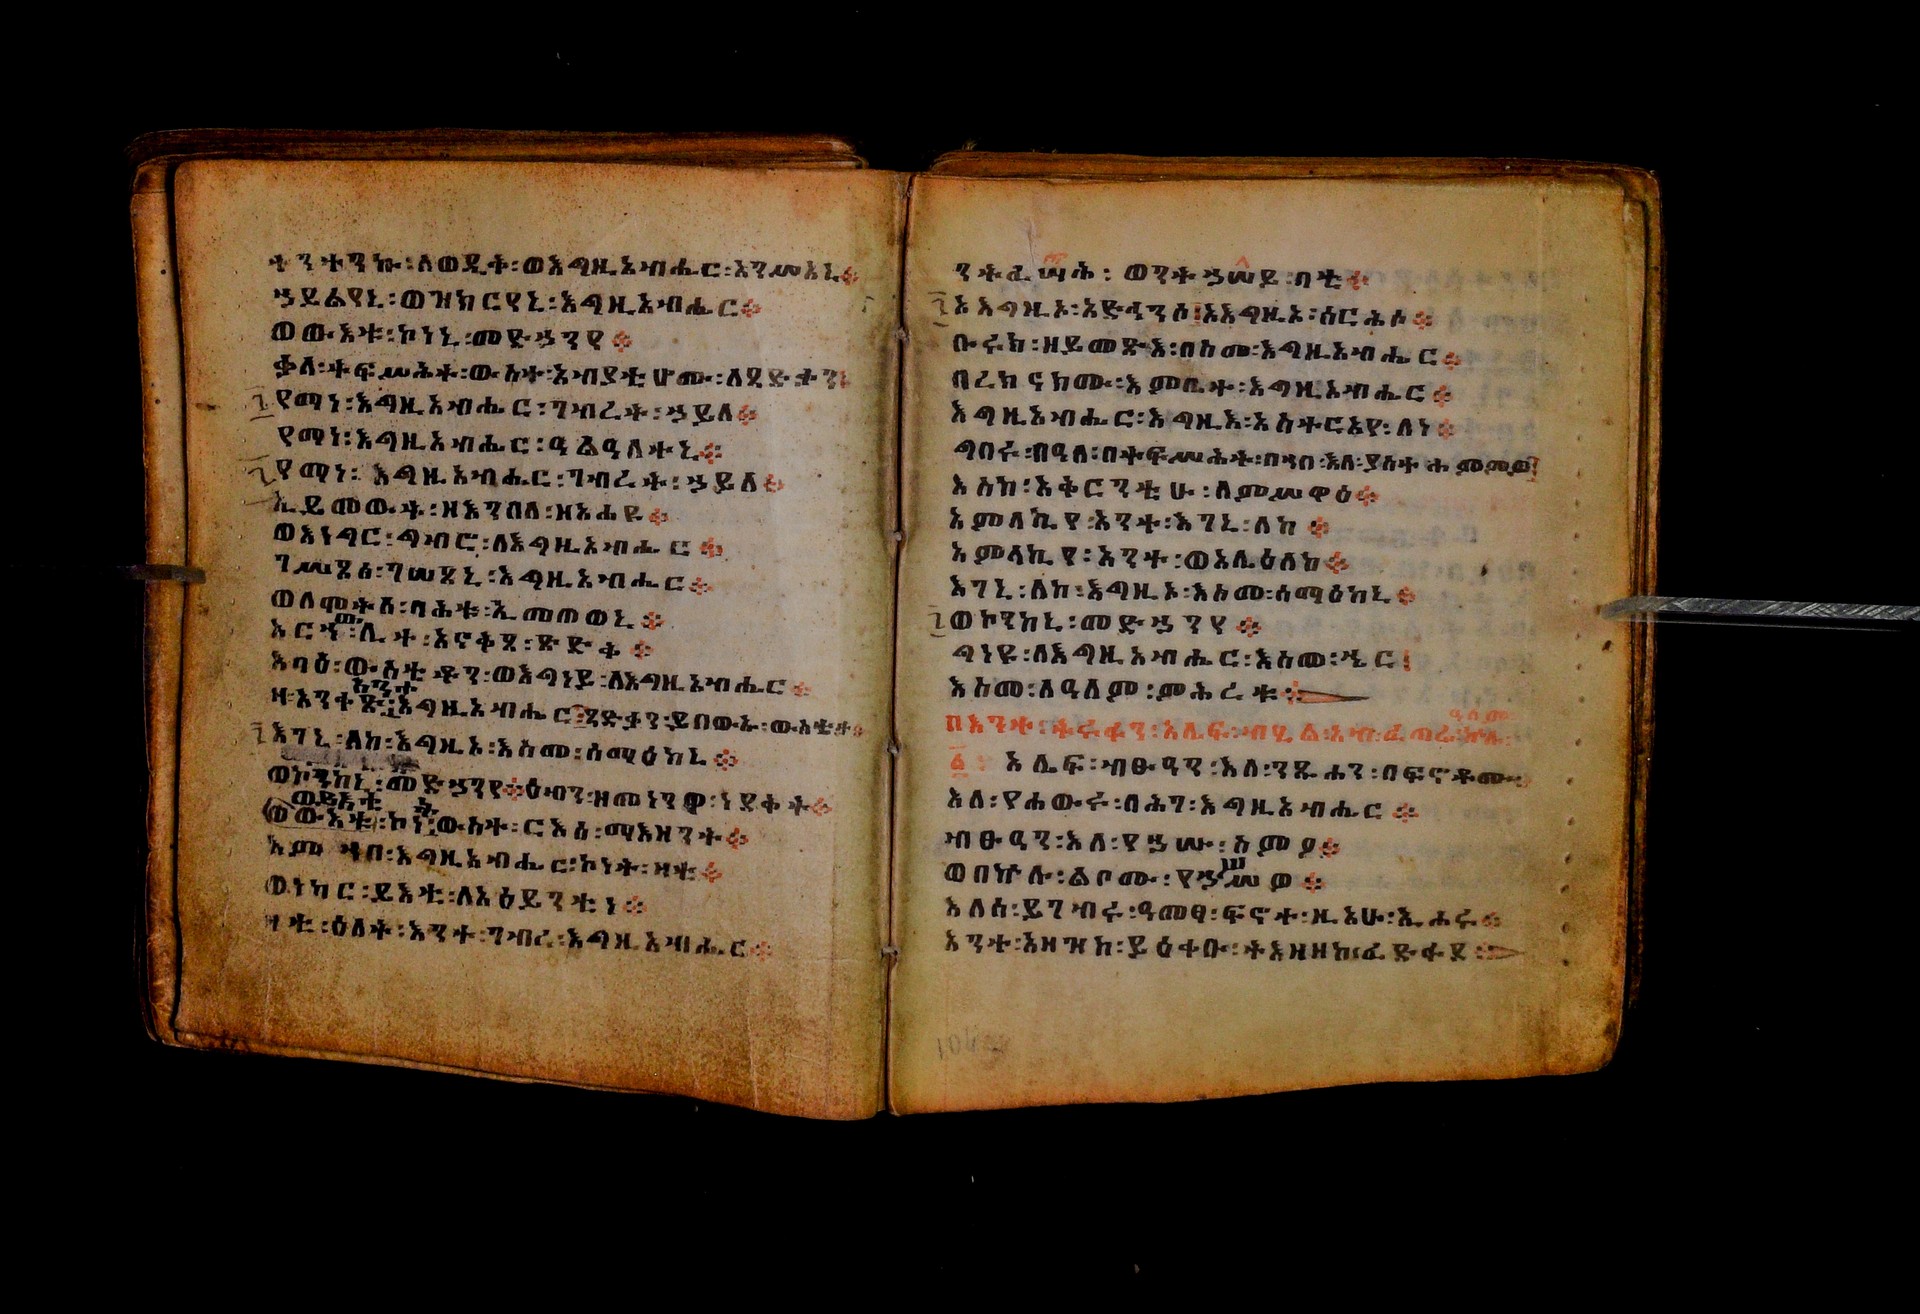 ተንተንኩ፡ለወዲቅ፡ወእግዚአብሔር፡አንሥአኒ፨
ኃይልየኒ፡ወዝክርየኒ፡እግዚአብሔር፨
ወውእቱ፡ኮነኒ፡መድኃንየ፨
ቃለ፡ተፍሥሕት፡ውስተ፡አብያቲሆሙ፡ለጻድቃን፨
የማነ፡እግዚአብሔር፡ገብረት፡ኃይለ፨
የማነ፡እግዚአብሔር፡ዓልዓለተኒ፨
የማነ፡እግዚአብሔር፡ገብረት፡ኃይለ፨
ኢይመውት፡ዘእንበለ፡ዘአሐዩ፨
ወእነግር፡ግብሮ፡ለእግዚአብሔር፨
ገሥጾሰ፡ገሠጸኒ፡እግዚአብሔር፨
ወለሞትሰ፡ባሕቱ፡ኢመጠወኒ፨
አርኅዉ፡ሊተ፡አናቅጸ፡ጽድቅ፨
እባእ፡ውስቴቶን፡ወእግነይ፡ለእግዚአብሔር፨
ዛአንቀጽ፡እንተ፡እግዚአብሔር፡ጻድቃን፡ይበውኡ፡ውስቴታ፨
እገኒ፡ለከ፡እግዚኦ፡እስመ፡ሰማዕከኒ፨
ወኮንከኒ፡መድኃንየ፨ዕብን፡ዘመነንዋ፡ነደቅት፨
ወይእቲ
ወውእቱ፡ኮነት፡ውስተ፡ርእሰ፡ማእዘንት፨
እም ኀበ፡እግዚአብሔር፡ኮነት፡ዛቲ፨
ወነክር፡ይእቲ፡ለአዕይንቲነ፨
ዛቲ፡ዕለት፡እንተ፡ገብረ፡እግዚአብሔር፨
ንትፈሣሕ፡ ወንትኃሠይ፡ባቲ፨
ኦእግዚኦ፡አድኅንሶ፡ኦእግዚኦ፡ሰርሕሶ፨
ቡሩክ፡ዘይመጽእ፡በስመ፡እግዚአብሔር፨
ባረክናክሙ፡እምቤተ፡እግዚአብሔር፨
እግዚአብሔር፡እግዚእ፡አስተርአየ፡ለነ፨
ግበሩ፡በዓለ፡በትፍሥሕት፡በኀበ፡እለ፡ያስተሐምምዎ፡
እስከ፡አቅርንቲሁ፡ለምሥዋዕ፨
አምላኪየ፡አንተ፡እገኒ፡ለከ፨
አምላኪየ፡አንተ፡ወአሌዕለከ፨
እገኒ፡ለከ፡እግዚኦ፡እስመ፡ሰማዕከኒ፨
ወኮንከኒ፡መድኃንየ፨
ግነዩ፡ለእግዚአብሔር፡እስመ፡ኄር፡
እስመ፡ለዓለም፡ምሕረቱ፨
ዓለመ
በእንተ፡
አሌፍ፡ብፁዓን፡እለ፡ንጹሐን፡በፍኖቶሙ፨
እለ፡የሐውሩ፡በሕገ፡እግዚአብሔር፨
ብፁዓን፡እለ፡የኃሡ፡ስምዖ፨
ወበኵሉ፡ልቦሙ፡የኃሥዎ፨
እለሰ፡ይገብሩ፡ዓመፃ፡ፍኖተ፡ዚአሁ፡ኢሐሩ፨
አንተ፡አዘዝከ፡ይዕቀቡ፡ትእዛዘከ፡ፈድፋደ፨